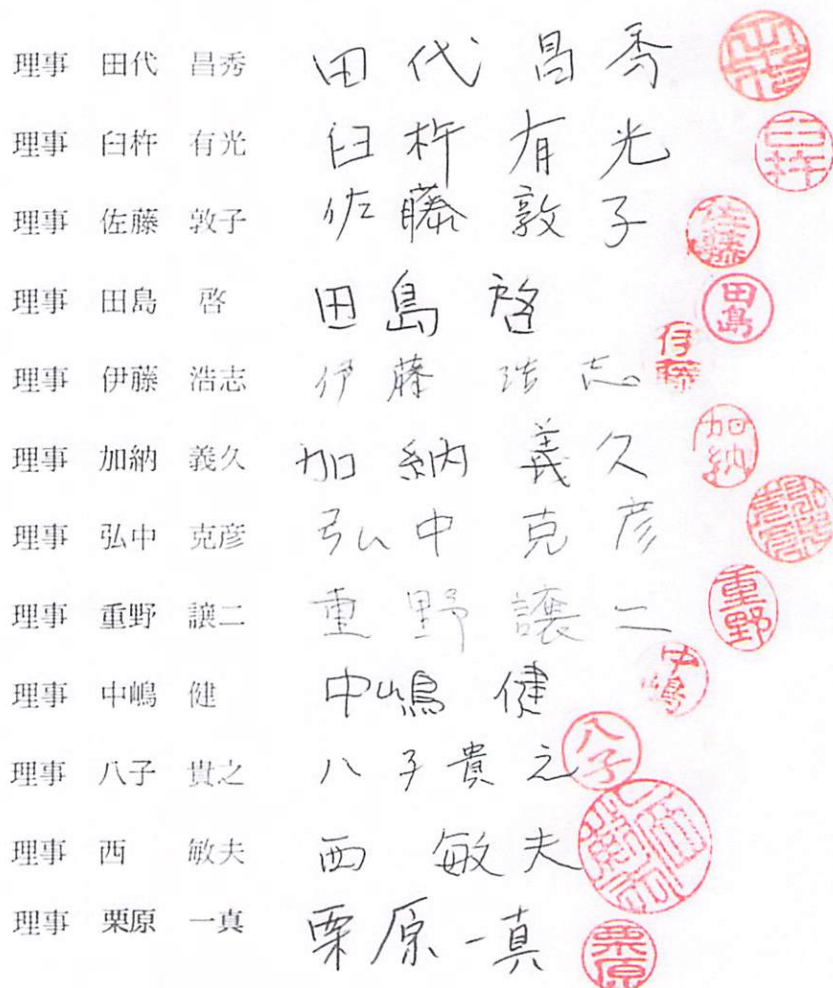 理事 田代 昌秀 田代昌秀
理事 臼杵 有光 臼杵有光 臼杵
理事 佐藤 敦子 佐藤敦子 佐藤
理事 田島 啓 田島啓 田島
理事 伊藤 浩志 伊藤浩志 伊藤
理事 加納 義久 加納義久 加納
理事 弘中 克彦 弘中克彦
理事 重野 譲二 重野譲二 重野
理事 中嶋 健 中嶋健 中嶋
理事 八子 貴之 八子貴之 八子
理事 西 敏夫 西敏夫
理事 栗原 一真 栗原一真 栗原